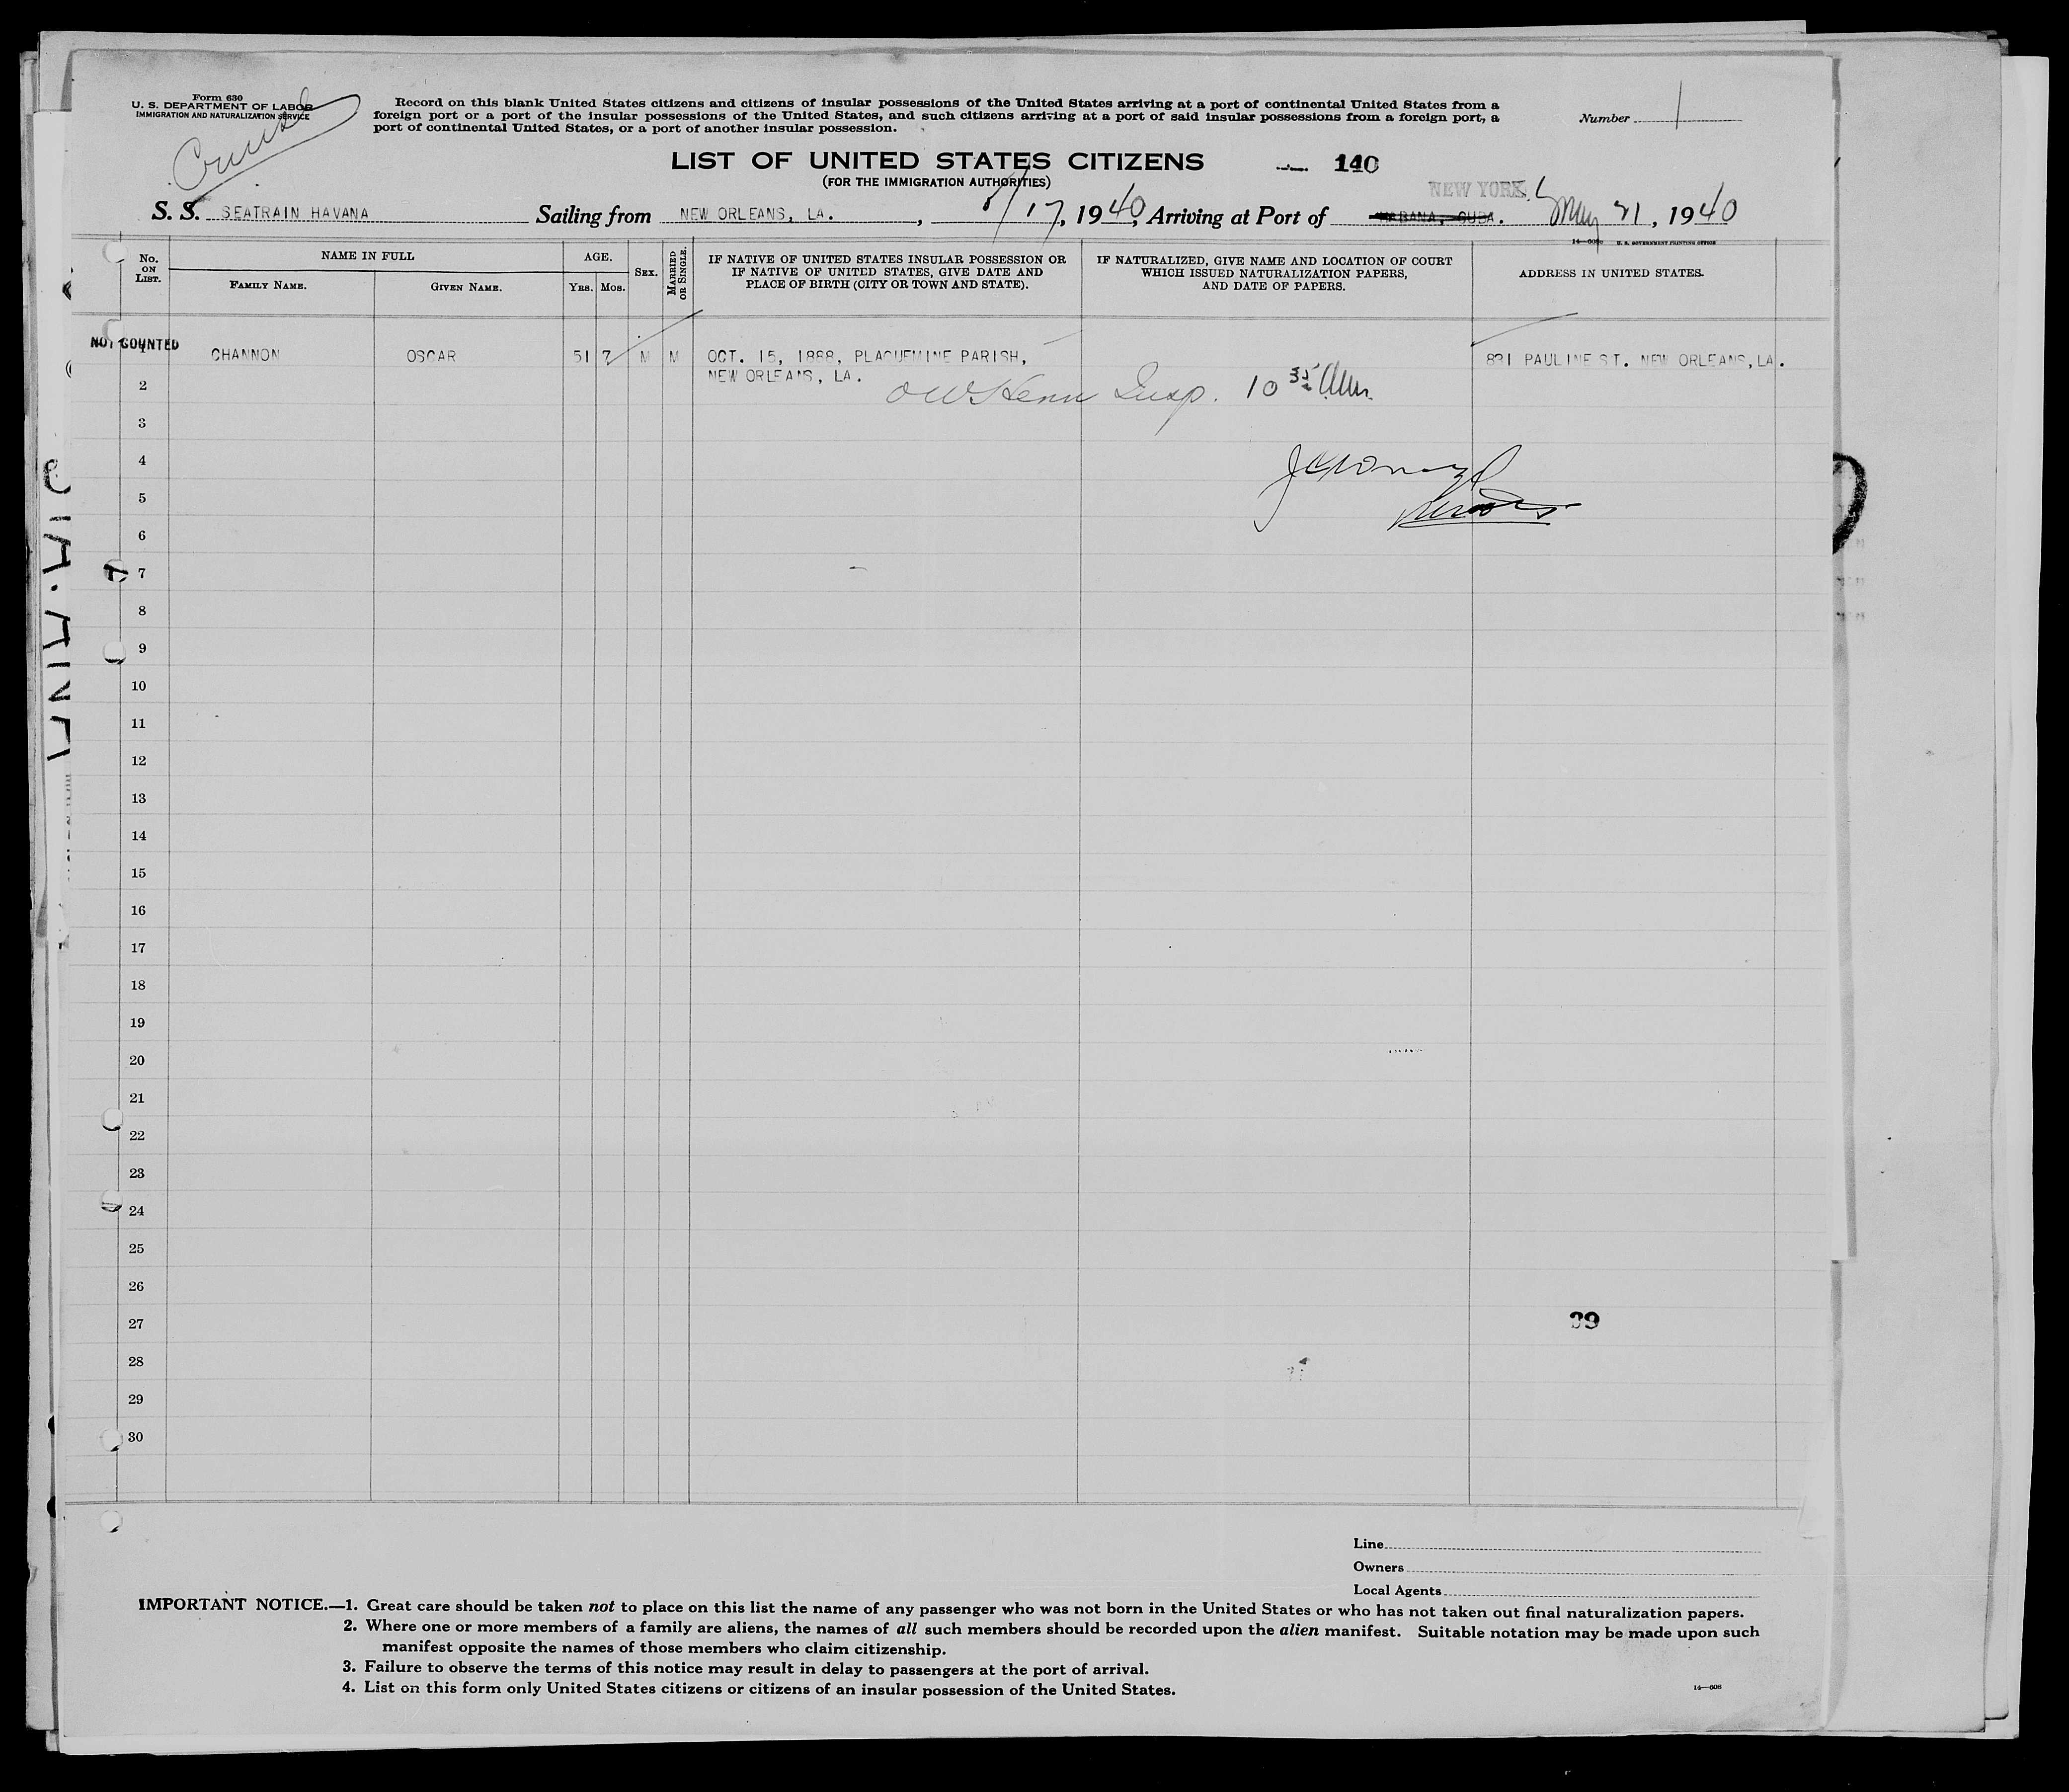 Form 630
U. S. DEPARTMENT OF LABOR
IMMIGRATION AND NATURALIZATION SERVICE
Record on this blank United States citizens and citizens of insular possessions of the United States arriving at a port of continental United States from a
foreign port or a port of the insular possessions of the United States, and such citizens arriving at a port of said insular possessions from a foreign port, a
port of continental United States, or a port of another insular possession.
Number 1
LIST OF UNITED STATES CITIZENS 140
(FOR THE IMMIGRATION AUTHORITIES)
NEW YORK
S. S. SEATRAIN HAVANA Sailing from NEW ORLEANS, LA., 5/17, 1940, Arriving at Port of HABANA, CUBA. May 21, 1940
U. S. GOVERNMENT PRINTING OFFICE
No. ON LIST.
NAME IN FULL
FAMILY NAME.
GIVEN NAME.
AGE.
YRS. MOS.
SEX.
MARRIED OR SINGLE.
IF NATIVE OF UNITED STATES INSULAR POSSESSION OR
IF NATIVE OF UNITED STATES, GIVE DATE AND
PLACE OF BIRTH (CITY OR TOWN AND STATE).
IF NATURALIZED, GIVE NAME AND LOCATION OF COURT
WHICH ISSUED NATURALIZATION PAPERS,
AND DATE OF PAPERS.
ADDRESS IN UNITED STATES.
NOT COUNTED
1 CHANNON OSCAR 51 7 M M OCT. 15, 1888, PLAQUEMINE PARISH, 831 PAULINE ST. NEW ORLEANS, LA.
NEW ORLEANS, LA.
2
Insp. 10 35 AM
3
4
5
6
7
8
9
10
11
12
13
14
15
16
17
18
19
20
21
22
23
24
25
26
27
39
28
29
30
Line
Owners
Local Agents
IMPORTANT NOTICE.—1. Great care should be taken not to place on this list the name of any passenger who was not born in the United States or who has not taken out final naturalization papers.
2. Where one or more members of a family are aliens, the names of all such members should be recorded upon the alien manifest. Suitable notation may be made upon such
manifest opposite the names of those members who claim citizenship.
3. Failure to observe the terms of this notice may result in delay to passengers at the port of arrival.
4. List on this form only United States citizens or citizens of an insular possession of the United States.
14—608